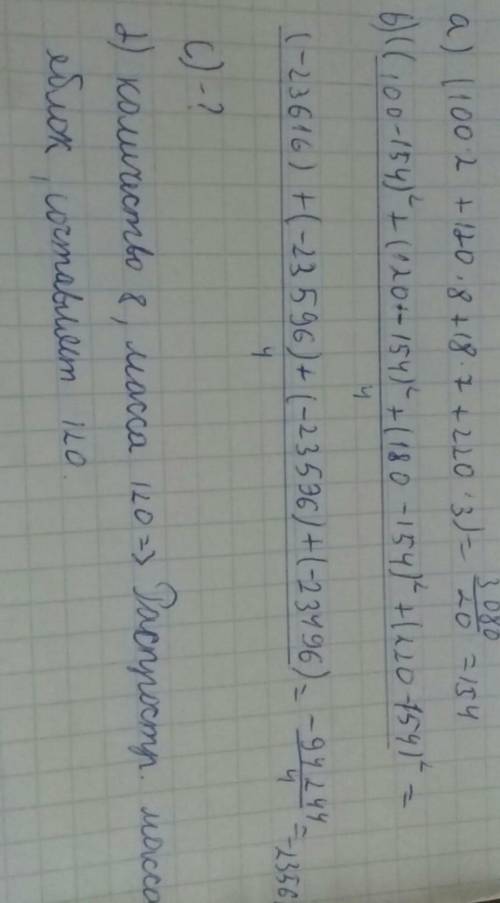 a) (100·2 + 120·8 + 18·7 + 220·3) = 3080/20 = 154
b) ((100-154)² + (120+-154)² + (180-154)² + (220-154)² =
4
(-23616) + (-23596) + (-23596) + (-23496) = -94244/4 = -2356
4
c) - ?
d) количество 8, масса 120 => Распростр. масса
яблок, составляет 120.